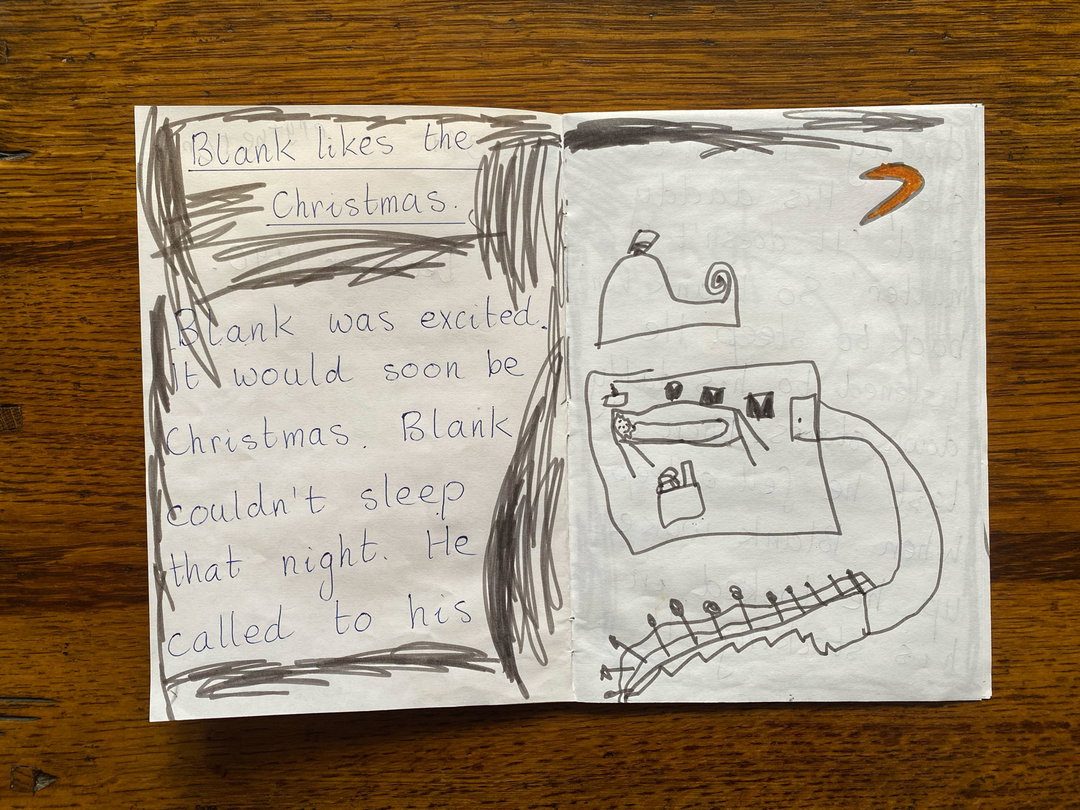 Blank likes the
Christmas.
Blank was excited.
It would soon be
Christmas. Blank
couldn't sleep
that night. He
called to his